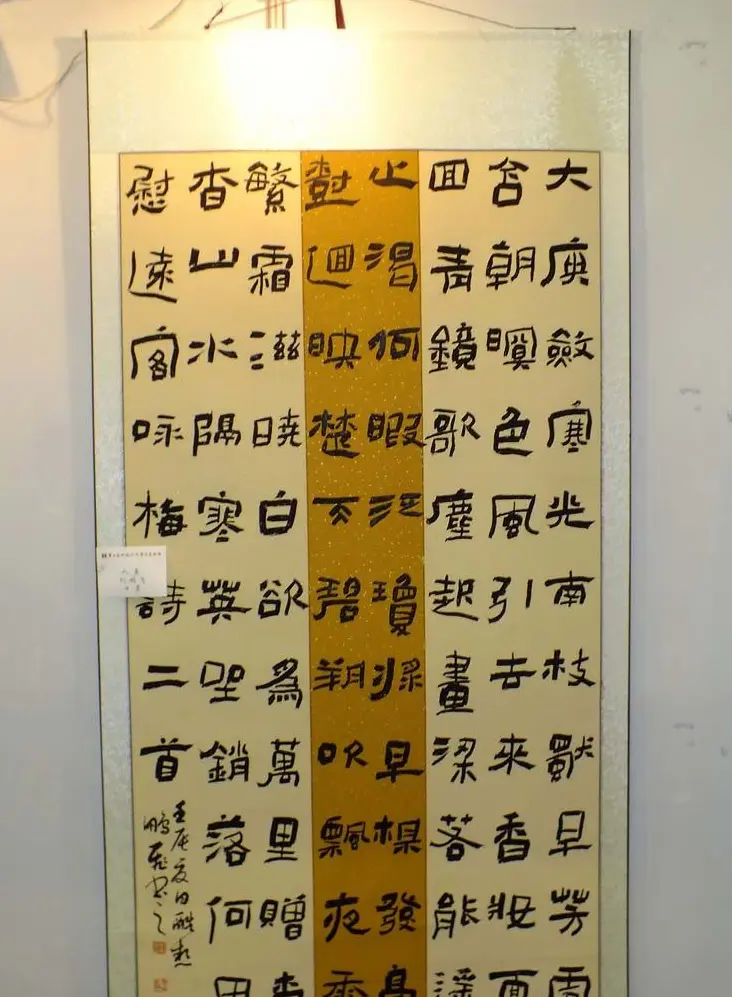 大庾斂寒光南枝獸早芳雪
含朝暝色風引去來香妝面
回青鏡歌塵起畫梁若能遥
止渴何暇泛瓊漿早楳發高
尌迴映楚天碧朔吹飄夜香
繁霜滋曉白欲為萬里贈杳
杳山水隔寒英坐銷落何用
慰遠客咏梅詩二首
壬辰夏日酷熱
鵬飛書之